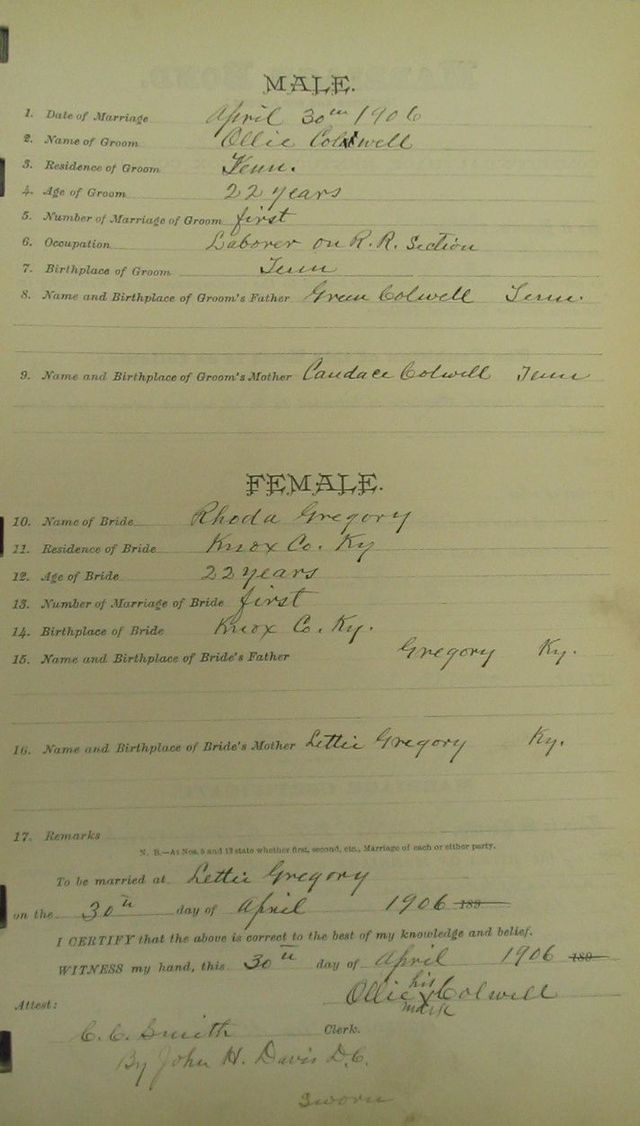 MALE.
1. Date of Marriage April 30th 1906
2. Name of Groom Ollie Colwell
3. Residence of Groom Tenn.
4. Age of Groom 22 years
5. Number of Marriage of Groom first
6. Occupation Laborer on R. R. Section
7. Birthplace of Groom Tenn
8. Name and Birthplace of Groom's Father Green Colwell Tenn.
9. Name and Birthplace of Groom's Mother Candace Colwell Tenn
FEMALE.
10. Name of Bride Rhoda Gregory
11. Residence of Bride Knox Co. Ky
12. Age of Bride 22 years
13. Number of Marriage of Bride first
14. Birthplace of Bride Knox Co. Ky.
15. Name and Birthplace of Bride's Father Gregory Ky.
16. Name and Birthplace of Bride's Mother Lettie Gregory Ky.
17. Remarks
N. B.—At Nos. 5 and 13 state whether first, second, etc., Marriage of each or either party.
To be married at Lettie Gregory
on the 30th day of April 1906 189
I CERTIFY that the above is correct to the best of my knowledge and belief.
WITNESS my hand, this 30th day of April 1906 189
his
Ollie X Colwell
mark
Attest:
C. C. Smith Clerk.
By John H. Davis D.C.
Sworn